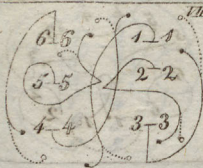 6-6 1-1
5-5 2-2
4-4 3-3